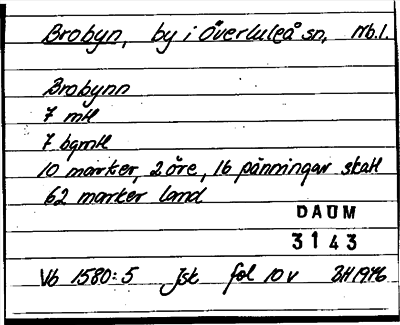 Brobyn, by i Överluleå sn, Nb.l.
Brobynn
7 mtl
7 bgmtl
10 marker, 2 öre, 16 pänningar skatt
62 marker land
DAUM
3143
Vb 1580:5 Jsk fol 10 v BH 1976